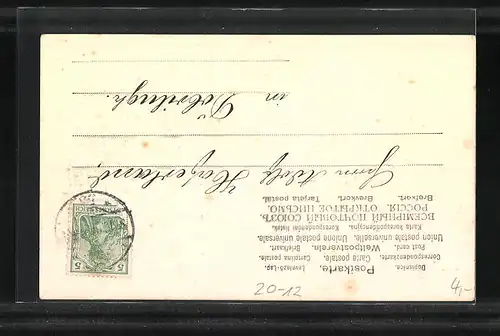 Dopisnice. Levelező-Lap.
Postkarte.
Correspondenzkarte. Carte postale. Cartolina postale.
Post card. Weltpostverein. Briefkaart.
Union postale universelle. Unione postale universale.
Karta korespondencyjna. Korespondenční lístek.
ВСЕМІРНЫЙ ПОЧТОВЫЙ СОЮЗЪ.
РОССІЯ. ОТКРЫТОЕ ПИСЬМО.
Brefkort. Brevkort. Tarjeta postal.
Herrn Adolf
in Döbrilugk.
5 5
20-12
4,-